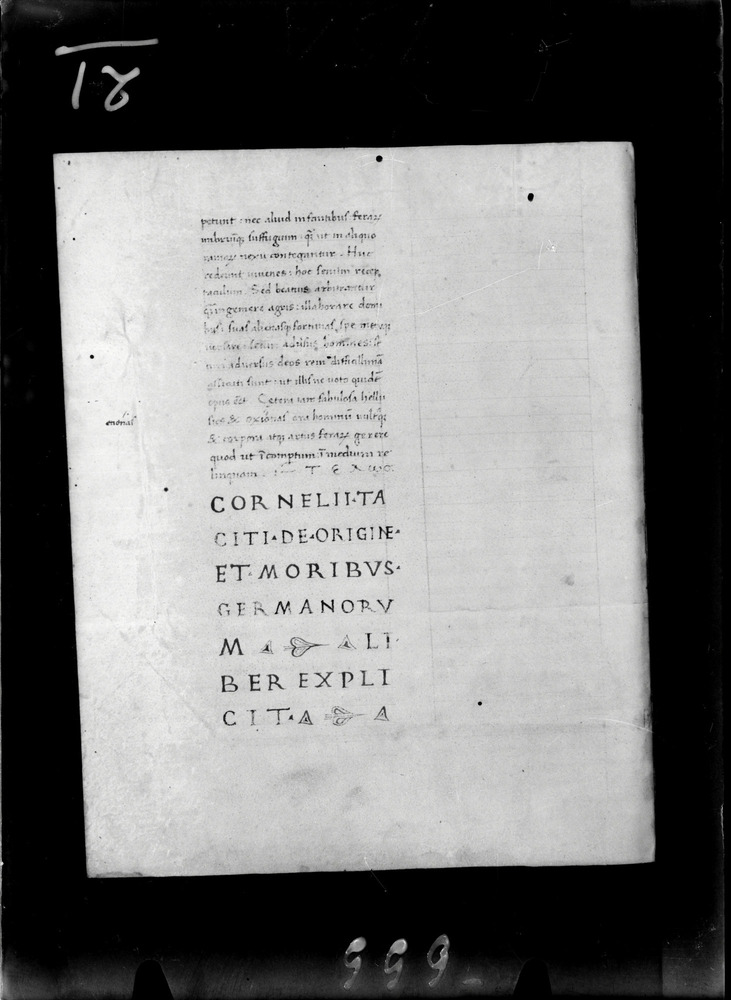 18
petunt: nec aliud infantibus feraꝝ
imbriumq; suffugium: ꝙ̃ ut in aliquo
ramoꝝ nexu contegantur. Huc
redeunt iuuenes: hoc senum recep
taculum. Sed beatius arbitrantur
ꝙ̃ ingemere agris: illaborare domi
bus: suas alienasq; fortunas spe metuq;
uersare: securi aduersus homines: se
curi aduersus deos rem difficillimā
assecuti sunt: ut illis ne uoto quidē
opus eēt. Cetera iam fabulosa hellu
sios & oxionas ora hominū uultusq;
etionas
& corpora atq; artus feraꝝ gerere
quod ut ī comptum ī medium re
linquam. Τ Ε Λ ω C.
CORNELII·TA
CITI·DE·ORIGINE·
ET·MORIBVS·
GERMANORV
M LI·
BER EXPLI
CIT·